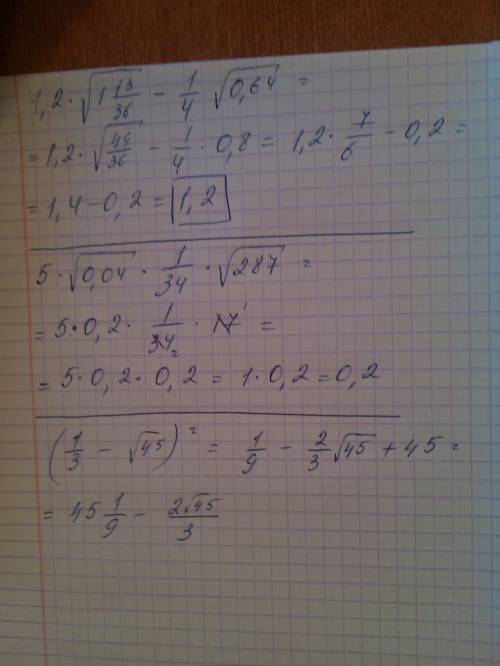 1,2 · √(1 13/36) − 1/4 √0,64 =
= 1,2 · √(49/36) − 1/4 · 0,8 = 1,2 · 7/6 − 0,2 =
= 1,4 − 0,2 = 1,2
5 · √0,04 · 1/34 · √287 =
= 5 · 0,2 · 1/34 2 · 17 1 =
= 5 · 0,2 · 0,2 = 1 · 0,2 = 0,2
(1/3 − √45)² = 1/9 − 2/3 √45 + 45 =
= 45 1/9 − 2√45/3